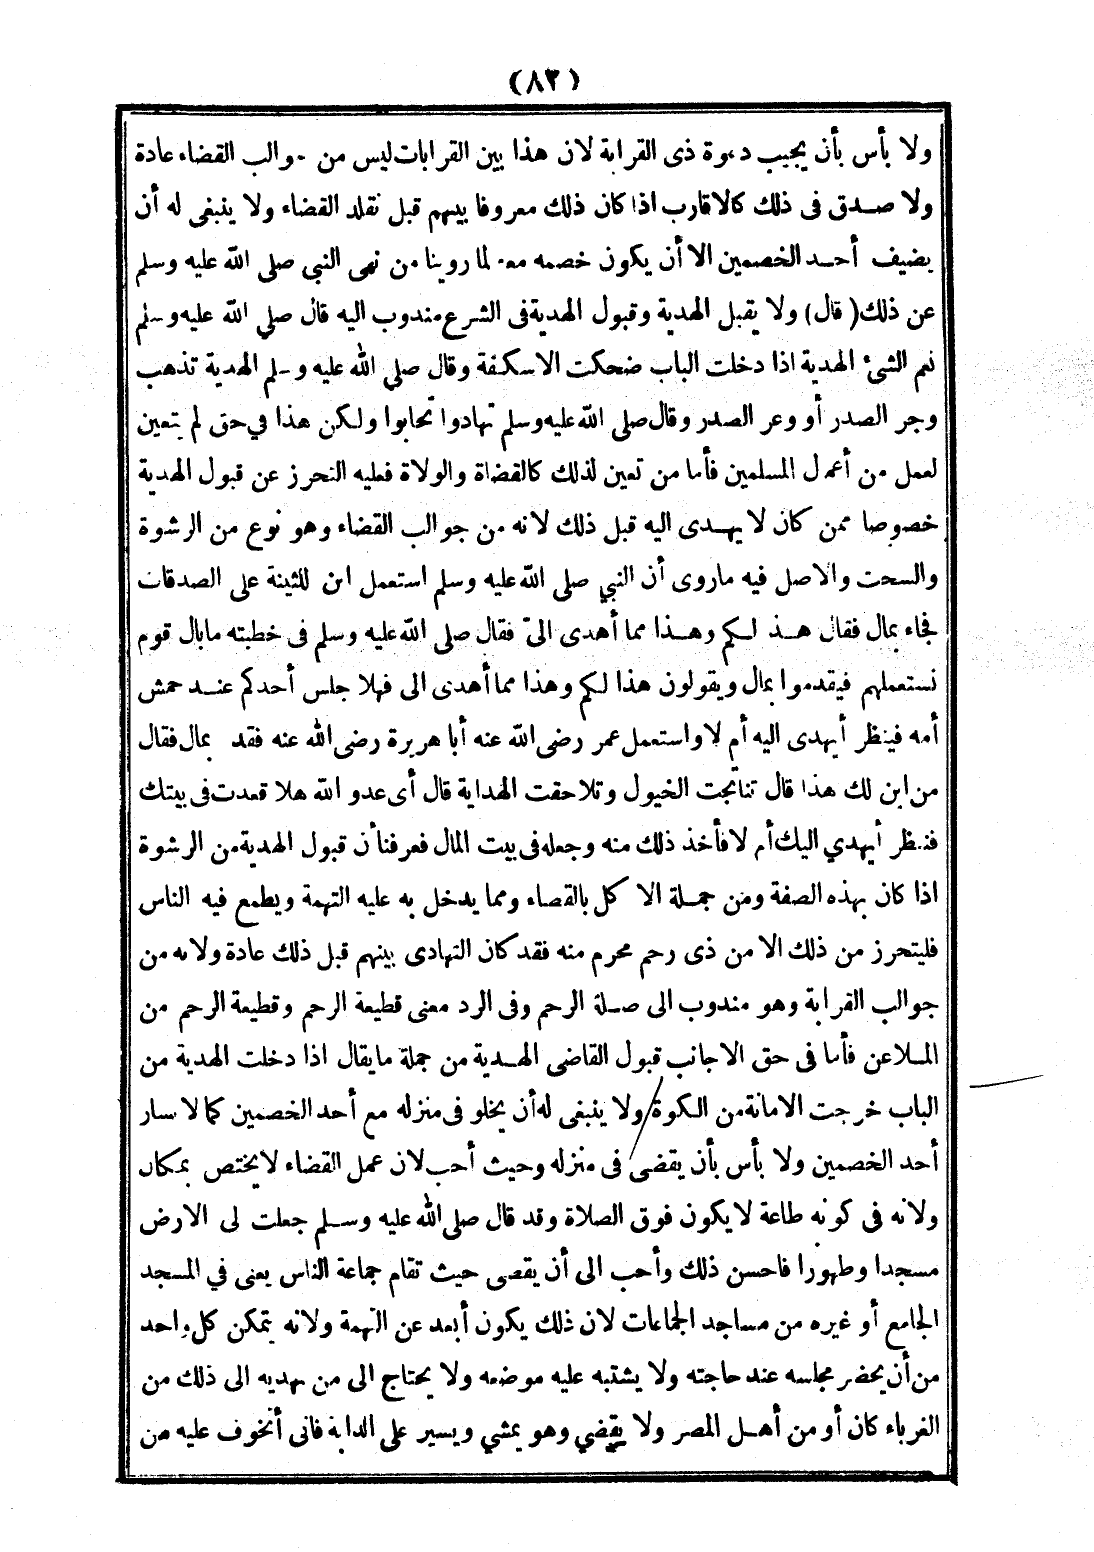 (٨٢)
ولا بأس بأن يجيب دعوة ذى القرابة لان هذا بين القرابات ليس من جوالب القضاء عادة
ولا صدق فى ذلك كالاقارب اذا كان ذلك معروفا بينهم قبل تقلد القضاء ولا ينبغى له أن
يضيف أحد الخصمين الا أن يكون خصمه معه لما روينا من نهى النبي صلى الله عليه وسلم
عن ذلك (قال) ولا يقبل الهدية وقبول الهدية فى الشرع مندوب اليه قال صلي الله عليه وسلم
نعم الشئ الهدية اذا دخلت الباب ضحكت الاسكفة وقال صلي الله عليه وسلم الهدية تذهب
وجر الصدر أو وعر الصدر وقال صلى الله عليه وسلم تهادوا تحابوا ولكن هذا في حق لم يتعين
لعمل من أعمال المسلمين فأما من تعين لذلك كالقضاة والولاة فعليه التحرز عن قبول الهدية
خصوصا ممن كان لا يهدى اليه قبل ذلك لانه من جوالب القضاء وهو نوع من الرشوة
والسحت والاصل فيه ماروى أن النبي صلى الله عليه وسلم استعمل ابن للثينة على الصدقات
فجاء بمال فقال هذ لكم وهذا مما أهدى الىّ فقال صلى الله عليه وسلم فى خطبته مابال قوم
نستعملهم فيقدموا بمال ويقولون هذا لكم وهذا مما أهدى الى فهلا جلس أحدكم عند حمش
أمه فينظر أيهدى اليه أم لا واستعمل عمر رضى الله عنه أبا هريرة رضى الله عنه فقد بمال فقال
من ابن لك هذا قال تناتجت الخيول وتلاحقت الهداية قال أى عدو الله هلا قعدت فى بيتك
فنظر أيهدي اليك أم لا فأخذ ذلك منه وجعله فى بيت المال فعرفنا أن قبول الهدية من الرشوة
اذا كان بهذه الصفة ومن جملة الا كل بالقضاء ومما يدخل به عليه التهمة ويطمع فيه الناس
فليتحرز من ذلك الا من ذى رحم محرم منه فقد كان التهادى بينهم قبل ذلك عادة ولانه من
جوالب القرابة وهو مندوب الى صلة الرحم وفى الرد معنى قطيعة الرحم وقطيعة الرحم من
الملاعن فأما فى حق الاجانب قبول القاضى الهدية من جملة مايقال اذا دخلت الهدية من
الباب خرجت الامانة من الكوة ولا ينبغى له أن يخلو فى منزله مع أحد الخصمين كما لا سار
أحد الخصمين ولا بأس بأن يقضى فى منزله وحيث أحب لان عمل القضاء لا يختص بمكان
ولانه فى كونه طاعة لا يكون فوق الصلاة وقد قال صلى الله عليه وسلم جعلت لى الارض
مسجدا وطهورا فاحسن ذلك وأحب الى أن يقضى حيث تقام جماعة الناس يعنى في المسجد
الجامع أو غيره من مساجد الجماعات لان ذلك يكون أبعد عن التهمة ولانه يتمكن كل واحد
من أن يحضر مجلسه عند حاجته ولا يشتبه عليه موضعه ولا يحتاج الى من يهديه الى ذلك من
الغرباء كان أو من أهل المصر ولا يقضي وهو يمشي ويسير على الدابة فانى أتخوف عليه من